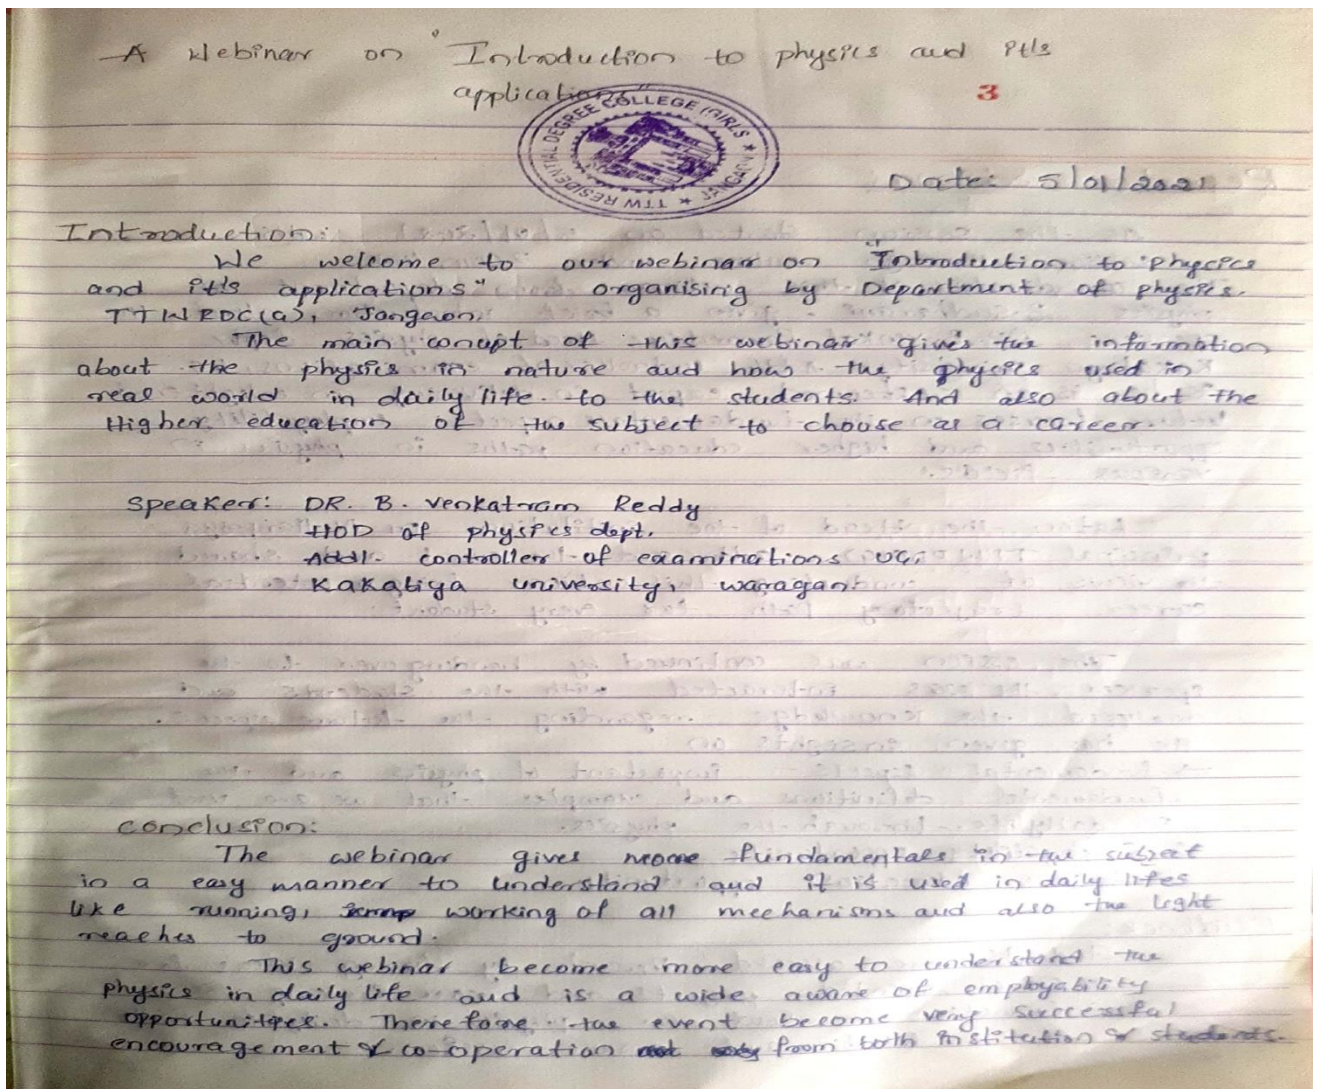 A Webinar on "Introduction to physics and it's
applications"
3
TTW RESIDENTIAL DEGREE COLLEGE (GIRLS) * JANGAON *
Date: 5/01/2021
Introduction:
We welcome to our webinar on "Introduction to physics
and it's applications" organising by Department of physics.
TTWRDC(G), Jangaon.
The main conapt of this webinar gives the information
about the physics in nature and how the physics used in
real world in daily life to the students. And also about the
Higher education of the subject to choose as a career.
Speaker: DR. B. Venkatram Reddy
HOD of physics dept.
Addl. controller of examinations UG,
Kakatiya university, waragan
conclusion:
The webinar gives more fundamentals in the subject
in a easy manner to understand and it is used in daily lifes
like running, working of all meechanisms and also the light
reaches to ground.
This webinar become more easy to understand the
physics in daily life and is a wide aware of employability
opportunities. Therefore, the event become very successful
encouragement & co-operation from both institution & students.